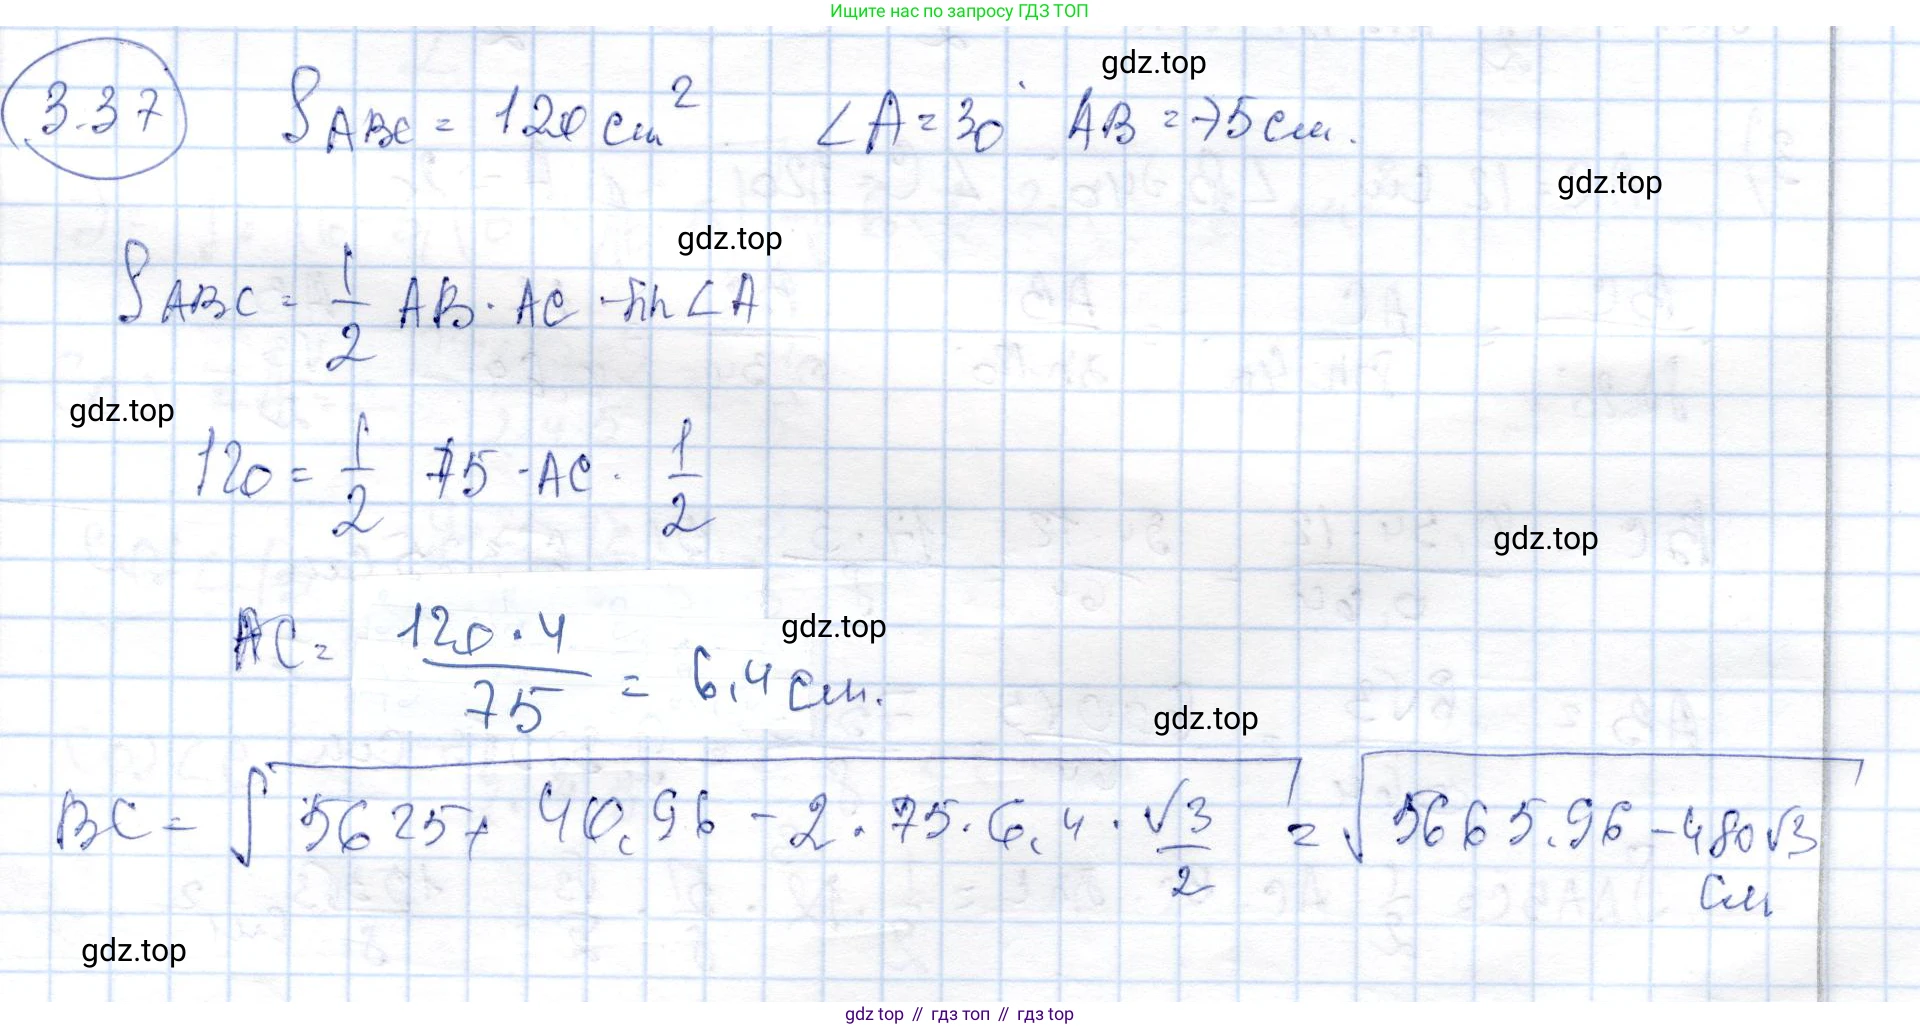 Ищите нас по запросу ГДЗ ТОП
gdz.top
3.37 S ABC = 120 см² ∠A = 30° AB = 75 см.
gdz.top
gdz.top
S ABC = 1/2 AB · AC · sin ∠A
gdz.top
120 = 1/2 75 · AC · 1/2
gdz.top
AC = 120 · 4 / 75 = 6,4 см.
gdz.top
gdz.top
BC = √(5625 + 40,96 - 2 · 75 · 6,4 · √3/2) = √(5665,96 - 480√3) см
gdz.top
gdz.top // гдз топ // гдз top